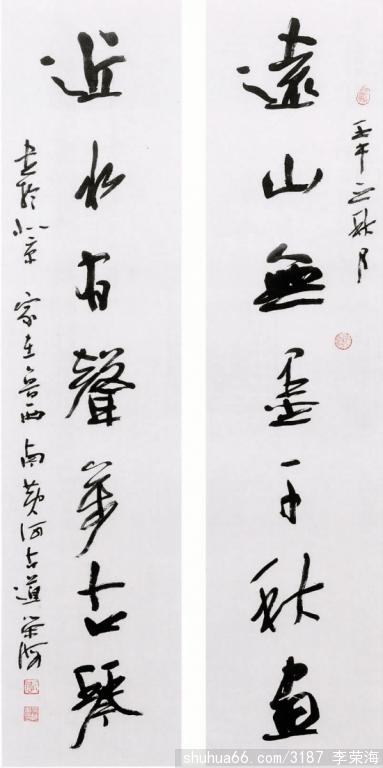 遠山無墨千秋畫
壬午之秋月
近水有聲萬古琴
書於北京 家在魯西南黃河古道 榮海
shuhua66.com/3187 李荣海